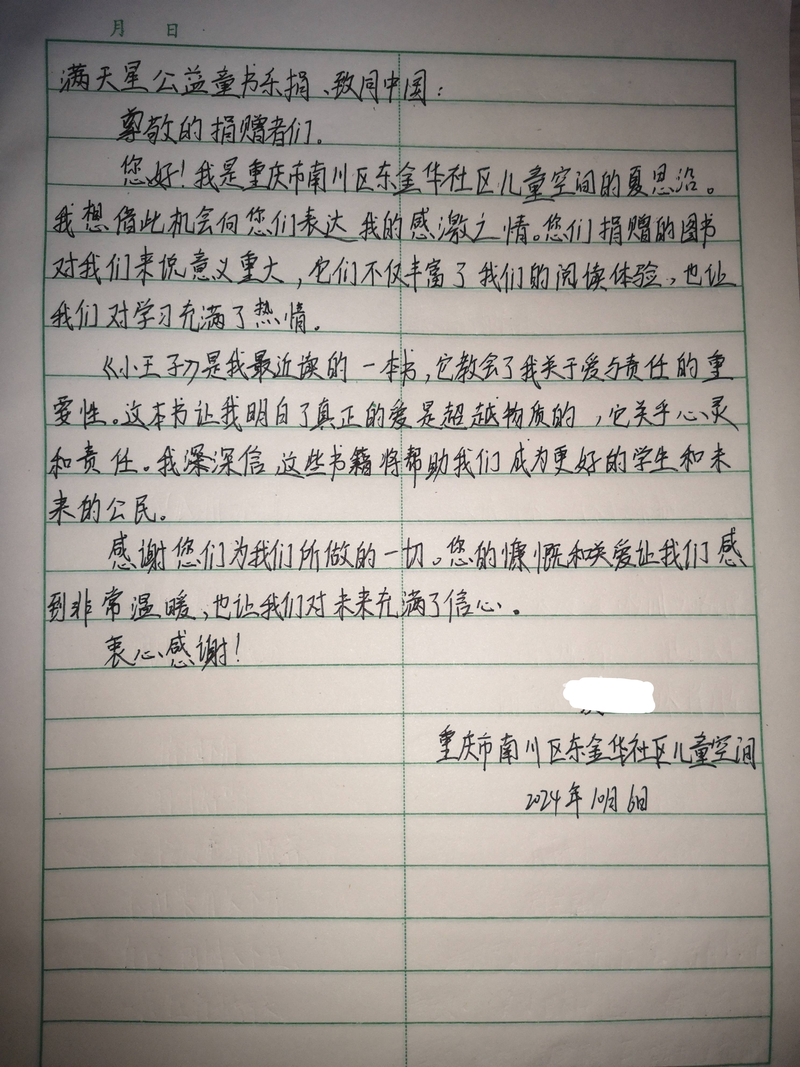 月 日
满天星公益童书乐捐、致同中国：
尊敬的捐赠者们。
您好！我是重庆市南川区东金华社区儿童空间的夏思沿。
我想借此机会向您们表达我的感激之情。您们捐赠的图书
对我们来说意义重大，它们不仅丰富了我们的阅读体验、也让
我们对学习充满了热情。
《小王子》是我最近读的一本书，它教会了我关于爱与责任的重
要性。这本书让我明白了真正的爱是超越物质的，它关乎心灵
和责任。我深深信这些书籍将帮助我们成为更好的学生和未
来的公民。
感谢您们为我们所做的一切。您的慷慨和关爱让我们感
到非常温暖，也让我们对未来充满了信心。
衷心感谢！
重庆市南川区东金华社区儿童空间
2024年10月6日